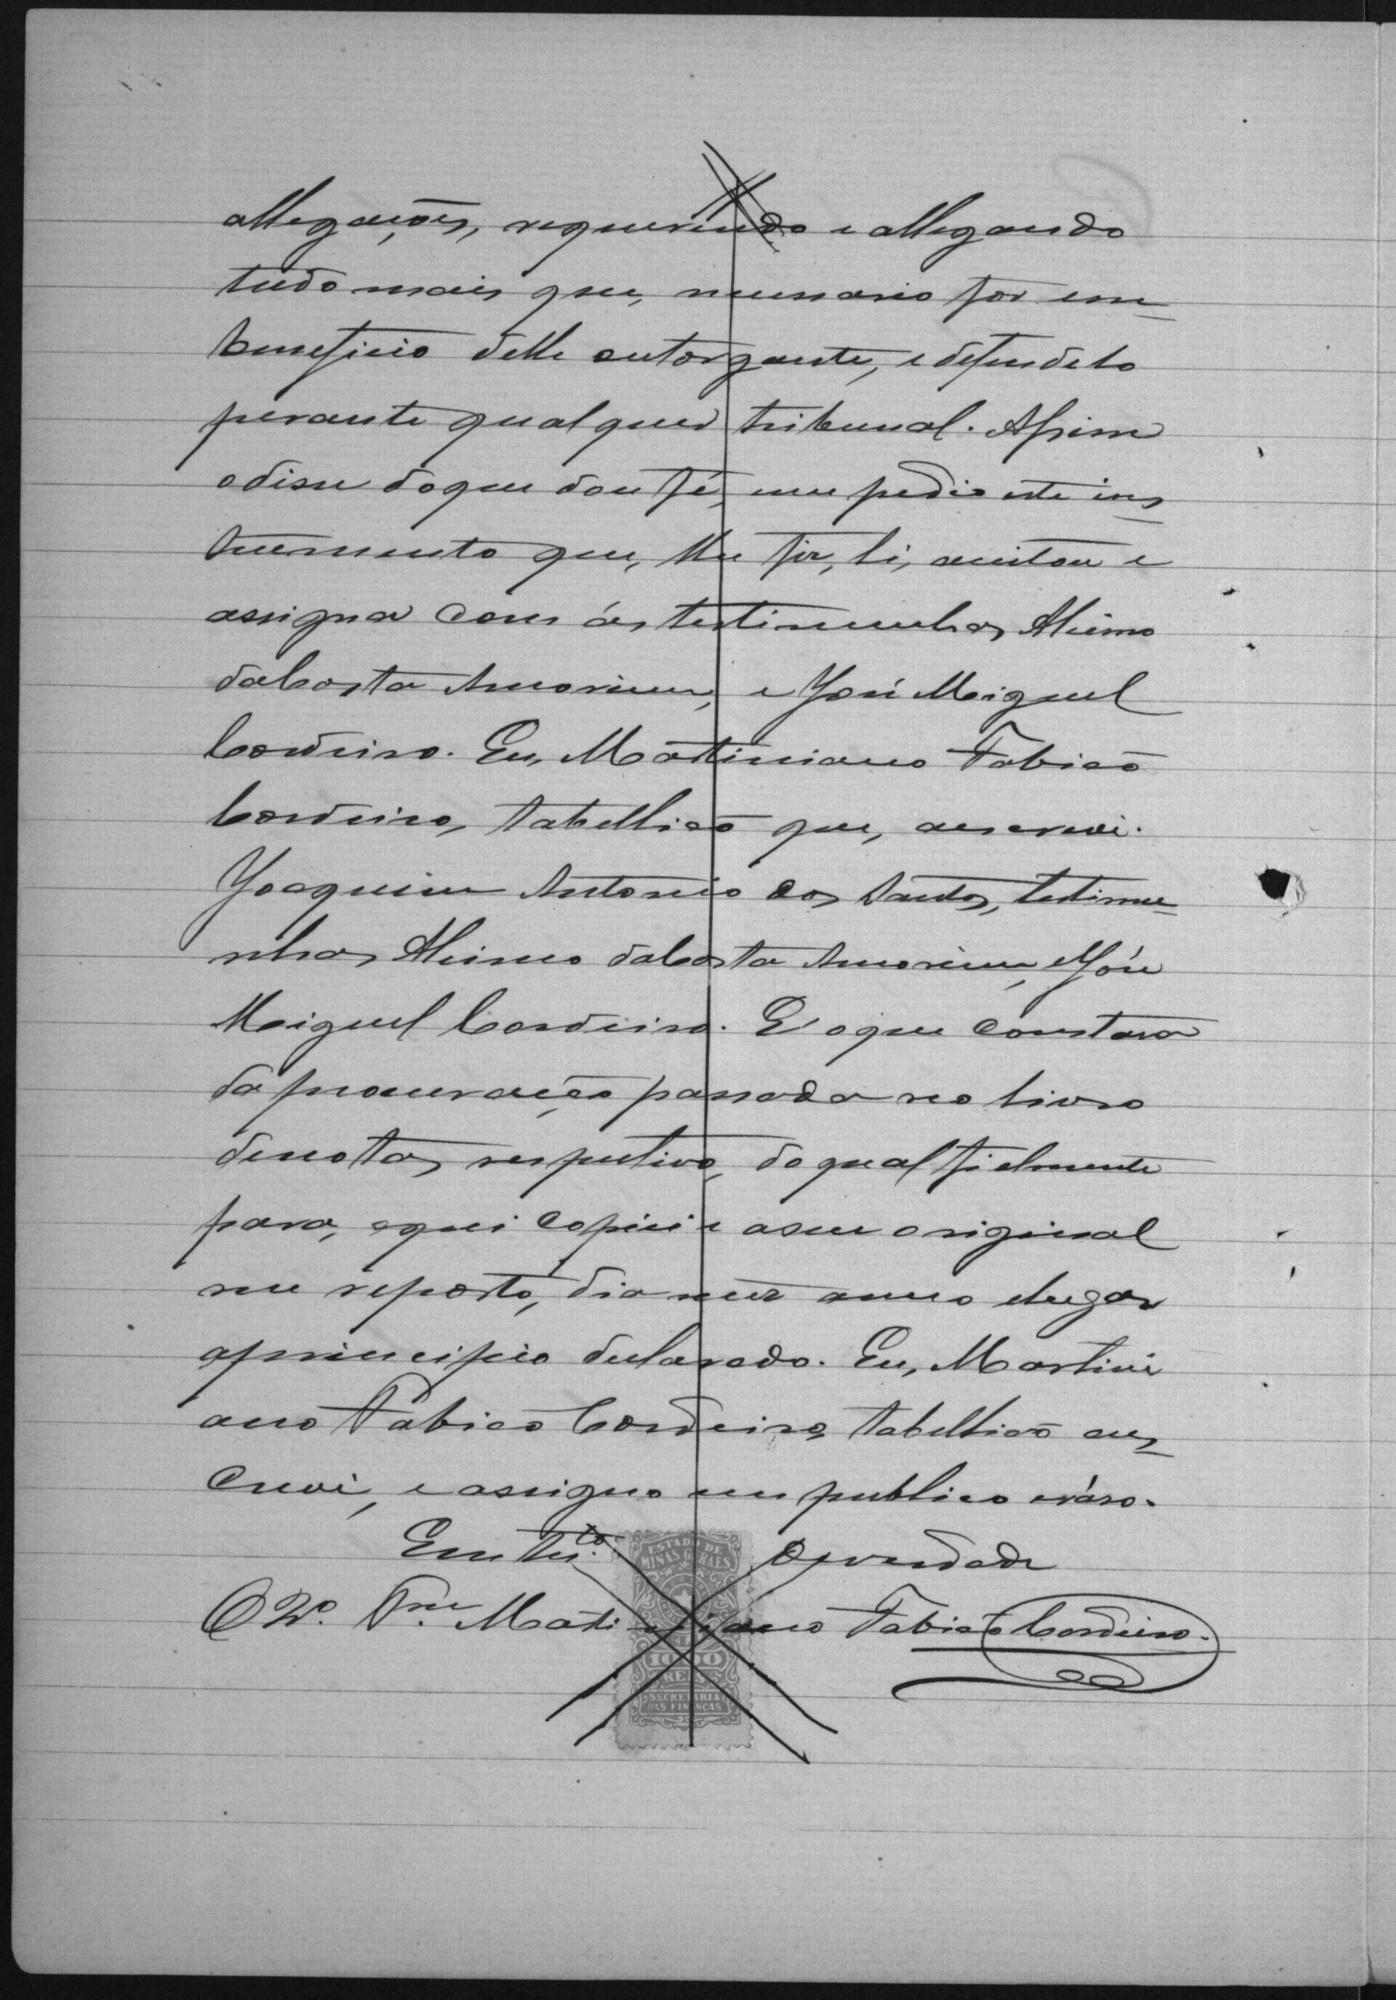 allegações, requerendo e allegando
tudo mais que, necessario for em
beneficio delle outorgante, e defendelo
perante qualquer tribunal. Assim
o disse do que dou fé, me pedio este ins
trumento que, lhe fiz, li, aceitou e
assigna com ás testimunhas
da Costa Amorim, e José Miguel
Cordeiro. Eu, Martiniano Fabiaõ
Cordeiro, tabelliaõ que, escrevi.
Joaquim Antonio dos Santos, testimu
nhas da Costa Amorim, e José
Miguel Cordeiro. E' o que constava
da procuração passada no livro
de notas respectivo, do qual fielmente
para, aqui copiei e a seu original
me reporto, dia mez anno e lugar
a principio declarado. Eu, Martini
ano Fabiaõ Cordeiro, tabelliaõ es
crevi, e assigno em publico e ráso.
Em tes.to da verdade
O 2º. Martiniano Fabiaõ Cordeiro.
ESTADO DE
MINAS GERAES
1000
REIS
SECRETARIA
DAS FINANÇAS